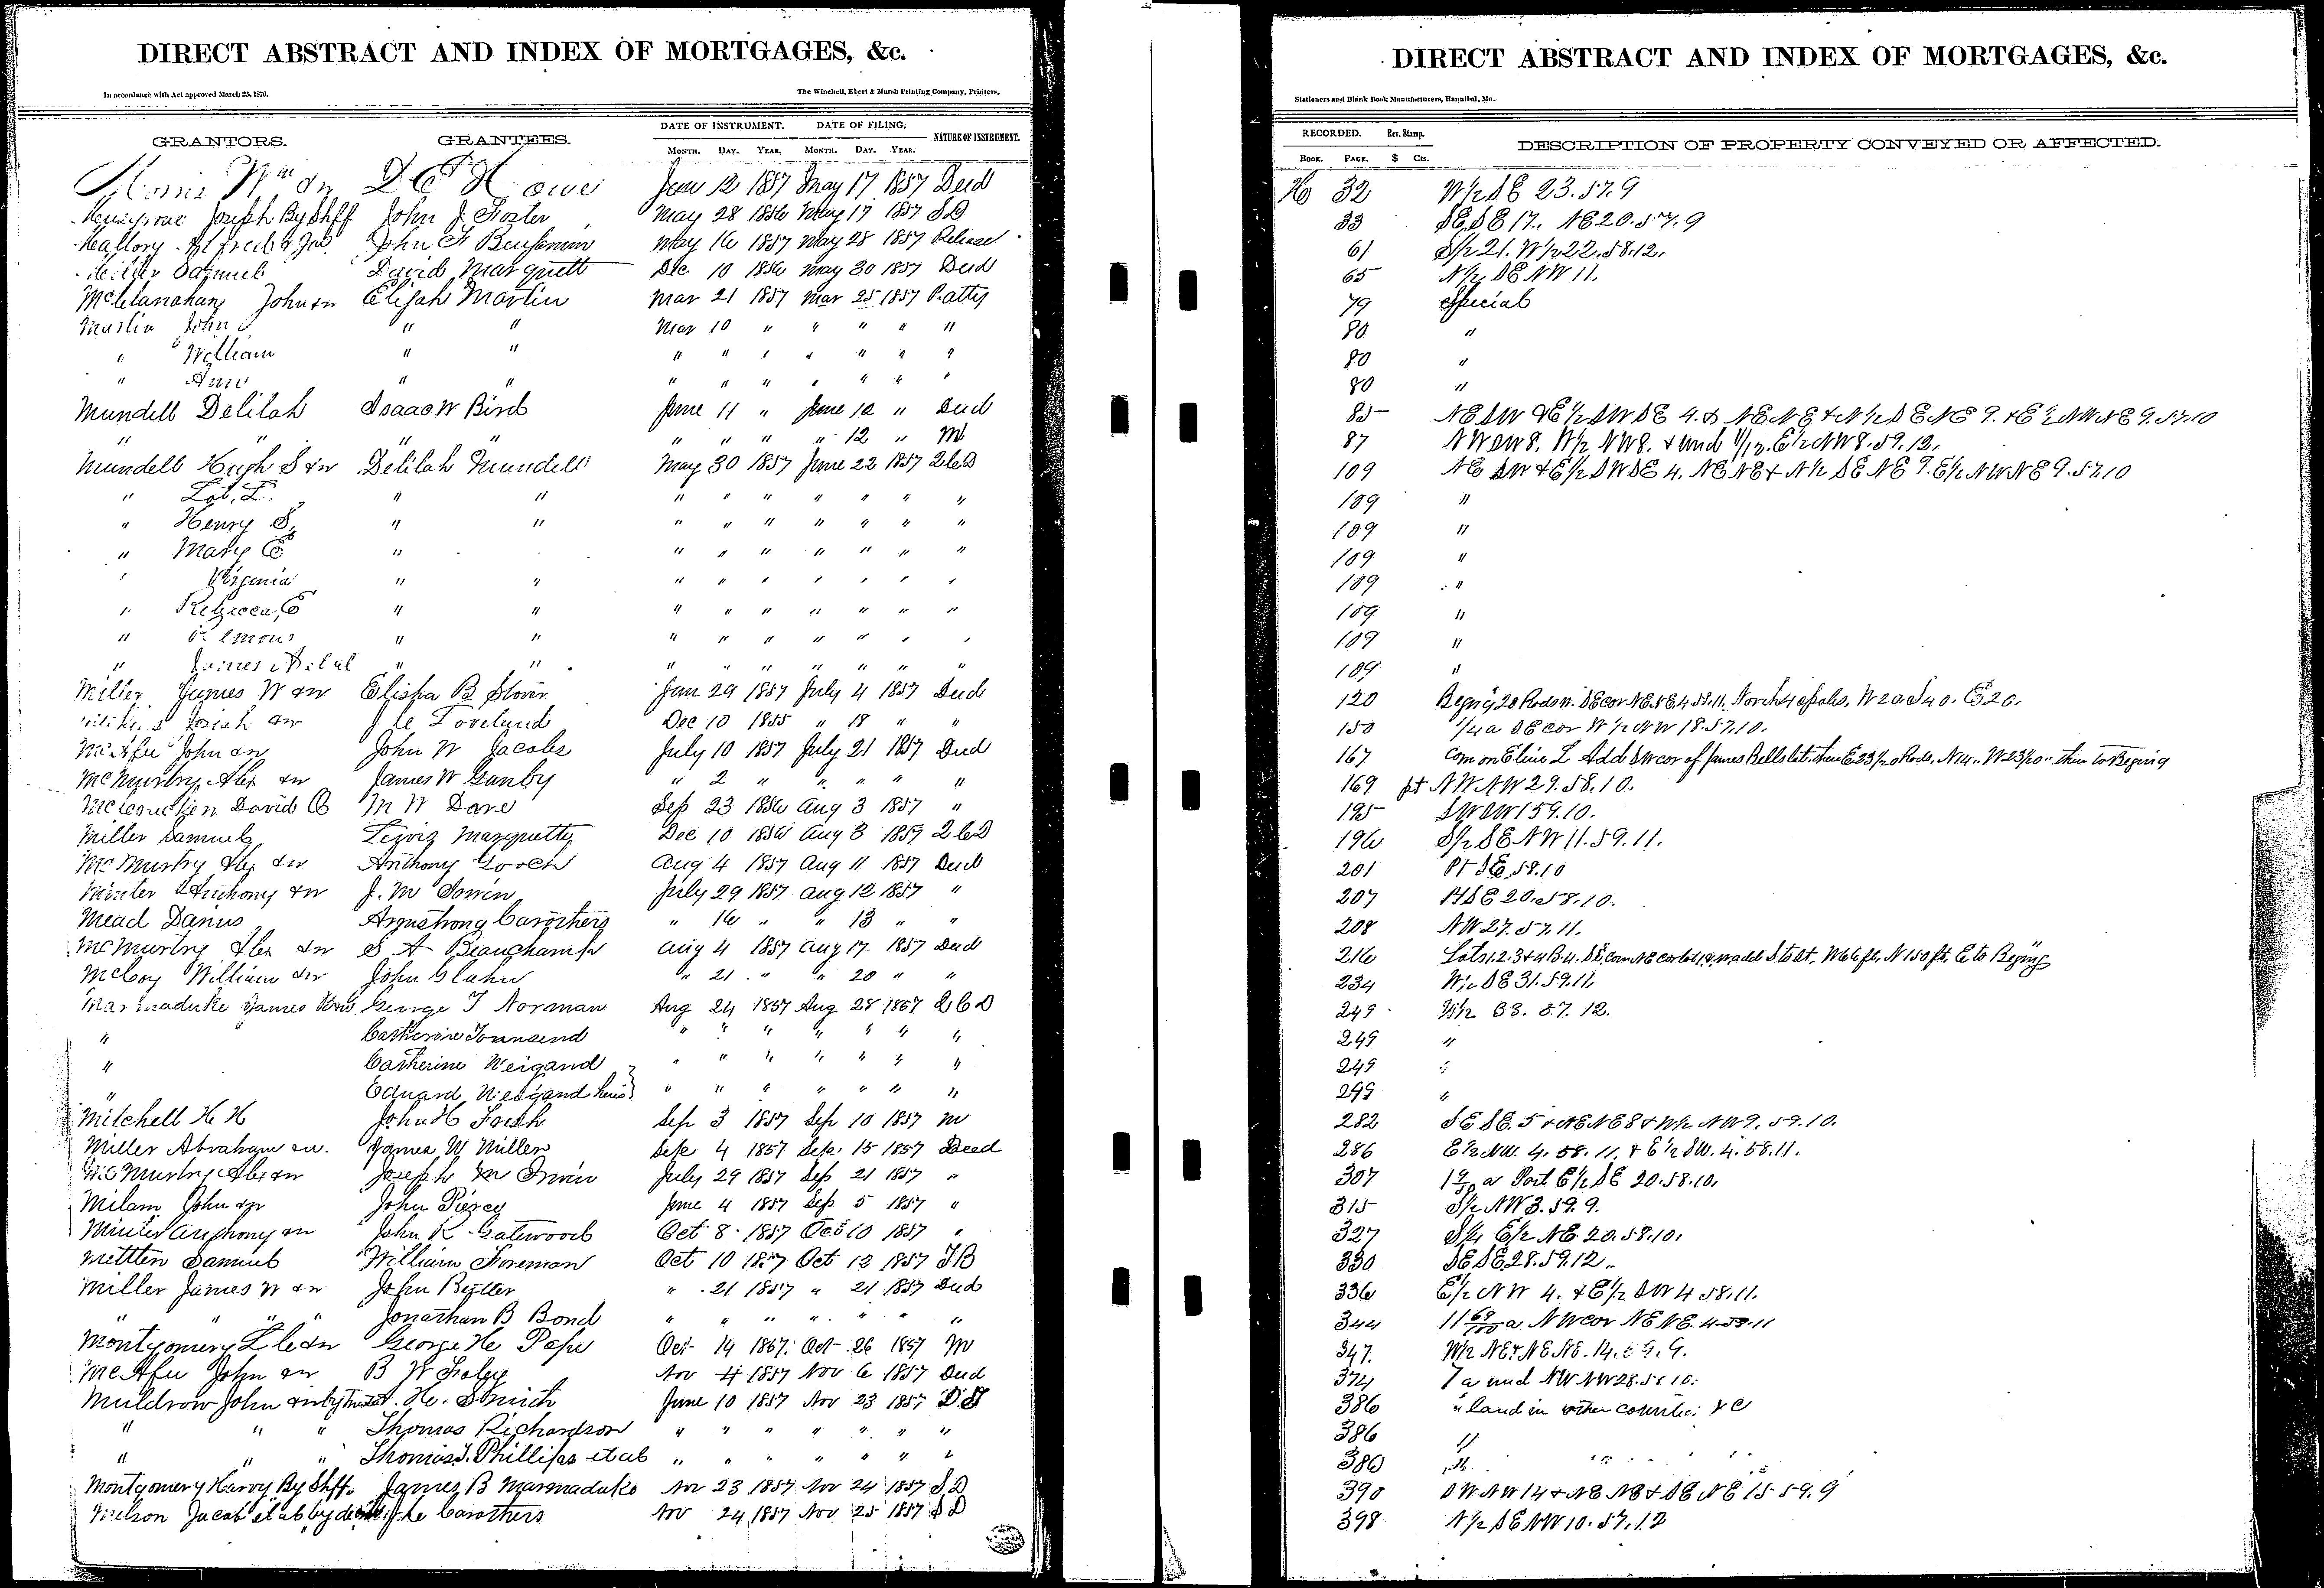 DIRECT ABSTRACT AND INDEX OF MORTGAGES, &c.
In accordance with Act approved March 25, 1870.
The Winchell, Ebert & Marsh Printing Company, Printers,
GRANTORS. GRANTEES. DATE OF INSTRUMENT. DATE OF FILING. NATURE OF INSTRUMENT.
MONTH. DAY. YEAR. MONTH. DAY. YEAR.
Wm & Jan 12 1857 May 17 1857 Deed
Joseph By Shff John J Foster May 28 1856 May 17 1857 S D
Mallory Alfred & John F Benjamin May 16 1857 May 28 1857 Release
Miller Samuel David Marquett Dec 10 1856 May 30 1857 Deed
McClanahan John &w Elijah Martin Mar 21 1857 Mar 25 1857 P. atty
Martin John " " Mar 10 " " " " "
" William " " " " " " " " "
" Ann " " " " " " " " "
Mundell Delilah Isaac W Bird June 11 " June 12 " Deed
" " " " " " " " 12 " M
Mundell Hugh S &w Delilah Mundell May 30 1857 June 22 1857 2 C D
" " " " " " " " " "
" Henry S, " " " " " " " " "
" Mary E " " " " " " " "
" Virginia " " " " " " " " "
" Rebecca, E " " " " " " " " "
" " " " " " " " " "
" James " " " " " " " " "
Miller James W &w Elisha B Stover Jan 29 1857 July 4 1857 Deed
Josiah &w J C Loveland Dec 10 1855 " 18 " "
McAfee John &w John W Jacobs July 10 1857 July 21 1857 Deed
McMurtry Alex &w James W Ganby " 2 " " " " "
David M W Dare Sep 23 1856 Aug 3 1857 "
Miller Samuel Marquette Dec 10 1856 Aug 8 1857 2 C D
McMurtry Alex &w Anthony Gooch Aug 4 1857 Aug 11 1857 Deed
Minter Anthony &w J. M July 29 1857 Aug 12 1857 "
Mead Darius Armstrong Carothers " 16 " " 13 " "
McMurtry Alex &w S A Beauchamp Aug 4 1857 Aug 17 1857 Deed
McCoy William &w John Glahn " 21 " " 20 " "
Marmaduke James George T Norman Aug 24 1857 Aug 28 1857 2 C D
" Catherine Townsend " " " " " " "
" Catherine Weigand " " " " " " "
" Edward Weigand heirs " " " " " " "
Mitchell H. H John H Foish Sep 3 1857 Sep 10 1857 M
Miller Abraham &w. James W Miller Sept 4 1857 Sept. 15 1857 Deed
McMurtry Alex &w Joseph M Irwin July 29 1857 Sep 21 1857 "
Milam John &w John Piercy June 4 1857 Sep 5 1857 "
Minter Anthony &w John K Gatewood Oct 8 1857 Oct 10 1857 "
Samuel William Foreman Oct 10 1857 Oct 12 1857 T B
Miller James W &w John Butler " 21 1857 " 21 1857 Deed
" " " Jonathan B Bond " " " " " "
Montgomery &w George H Pape Oct 14 1857 Oct 26 1857 M
McAfee John &w B W Foley Nov 4 1857 Nov 6 1857 Deed
Muldrow John &w by H. Smith June 10 1857 Nov 23 1857 D. T
" " " Thomas Richardson " " " " " " "
" " " Thomas J. Phillips et al " " " " " " "
Montgomery Harvy By Shff. James B Marmaduke Nov 23 1857 Nov 24 1857 S. D
Jacob et al by Carothers Nov 24 1857 Nov 25 1857 S D
DIRECT ABSTRACT AND INDEX OF MORTGAGES, &c.
Stationers and Blank Book Manufacturers, Hannibal, Mo.
RECORDED. Rev. Stamp. DESCRIPTION OF PROPERTY CONVEYED OR AFFECTED.
BOOK. PAGE. $ Cts.
32 W½ SE 23. 57. 9
33 SE SE 17. NE 20. 57. 9
61 S½ 21. W½ 22. 58. 12.
65 N½ SE NW 11.
79 Special
80 "
80 "
80 "
85 NE SW & E½ SW SE 4. & NE NE & N½ SE NE 9. & E½ NW NE 9. 57. 10
87 NW SW 8. W½ NW 8. & und 1/12 E½ NW 8. 59. 12.
109 NE SW & E½ SW SE 4. NE NE & N½ SE NE 9. E½ NW NE 9. 57. 10
109 "
109 "
109 "
109 "
109 "
109 "
109 "
120 Begng 20 Rods W. SE cor NE NE 4 58. 11. North 40 poles, W 20. S 40. E 20.
150 ¼ a SE cor W½ NW 18. 57. 10.
167 Com on E line L Add SW cor of James Bells lot, then E 23½0 Rods, N 14. W 23½0 then to Begining
169 pt NW NW 29. 58. 10.
195 SW SW 1 59. 10.
196 S½ SE NW 11. 59. 11.
201 Pt SE 58. 10
207 Pt SE 20. 58. 10.
208 NW 27. 57. 11.
216 Lots 1. 2. 3 & 4 B. 4. W 66 ft, N 150 ft, E to Begining
234 W½ SE 31. 59. 11.
249 W½ 33. 57. 12.
249 "
249 "
249 "
282 SE SE. 5 & NE NE 8 & W½ NW 9. 59. 10.
286 E½ NW. 4. 58. 11. & E½ SW. 4. 58. 11.
307 a Part E½ SE 20. 58. 10.
315 S½ NW 3. 59. 9.
327 S½ E½ NE 20. 58. 10.
330 SE SE 28. 59. 12.
336 E½ NW 4. & E½ SW 4 58. 11.
344 11 69/100 a NW cor NE NE. 4 59. 11
347. W½ NE & NE NE. 14. 59. 9.
374 7 a und NW NW 28. 58 10.
386 " land in other counties &c
386 "
386 " " " " " "
390 SW NW 14 & NE NE & SE NE 15 59. 9
398 N½ SE NW 10. 57. 12